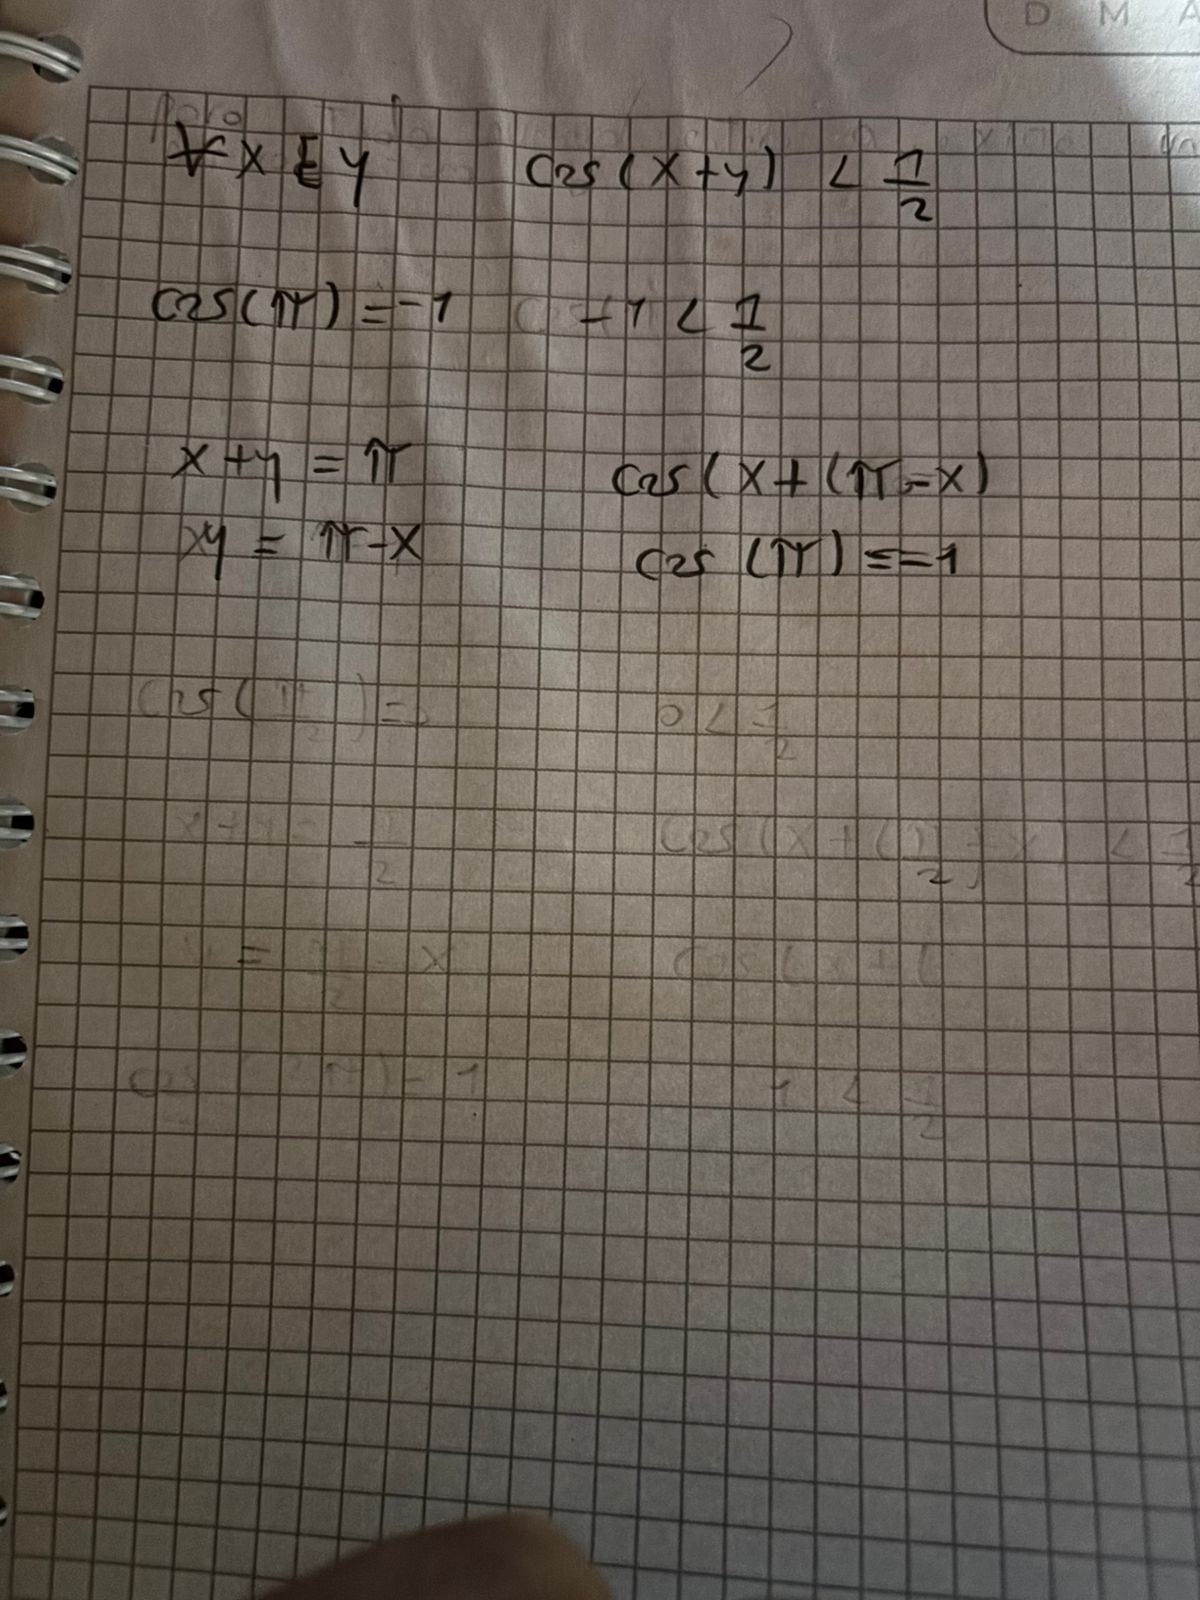 D M A
∀ x ∃ y cos(x+y) < 1/2
cos(π) = -1 -1 < 1/2
x+y = π cos(x+(π-x)
y = π-x cos (π) = -1
cos(π/2)= 0 < 1/2
x+y= π/2 cos(x+(π/2-x) < 1/2
y = π/2 - x cos(x+(
cos(2π)= 1 1 < 1/2